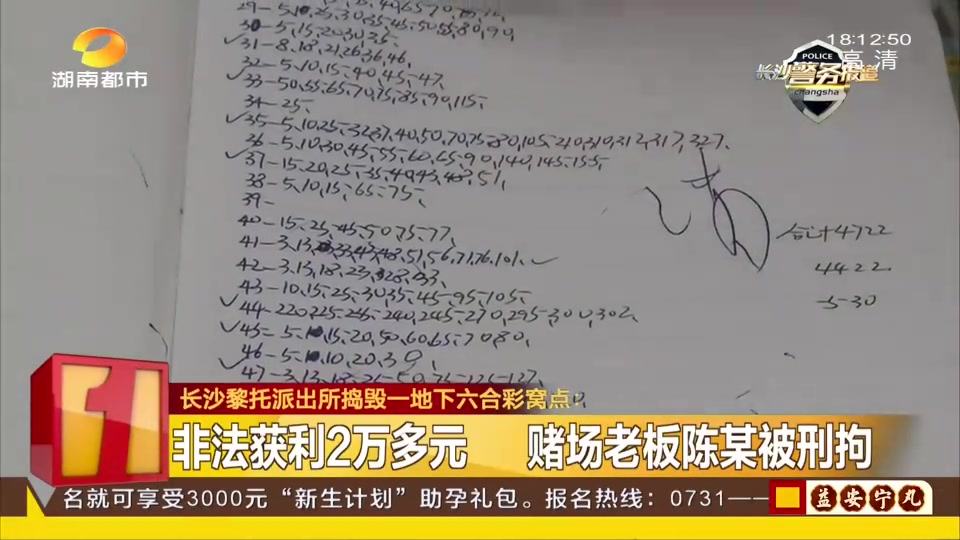 湖南都市
18:12:50
高清
POLICE
长沙警务报道
changsha
30-5,15,20,30,35,
31-8,18,21,26,36,46,
32-5,10,15,40,45,47,
33-50,55,65,70,75,85,90,115,
34-25,
35-5,10,25,32,37,40,50,70,75,80,105,210,310,312,317,327,
36-5,10,30,45,55,60,65,90,140,145,155,
37-15,20,25,35,40,43,48,51,
38-5,10,15,65,75,
39-
40-15,25,45,50,75,77,
43-10,15,25,30,35,45,95,105,
44-220,225,235,240,245,270,295,300,302,
46-5,10,10,20,39,
合计4722
4422
-530
长沙黎托派出所捣毁一地下六合彩窝点
非法获利2万多元 赌场老板陈某被刑拘
名就可享受3000元“新生计划”助孕礼包。报名热线：0731——
益安宁丸